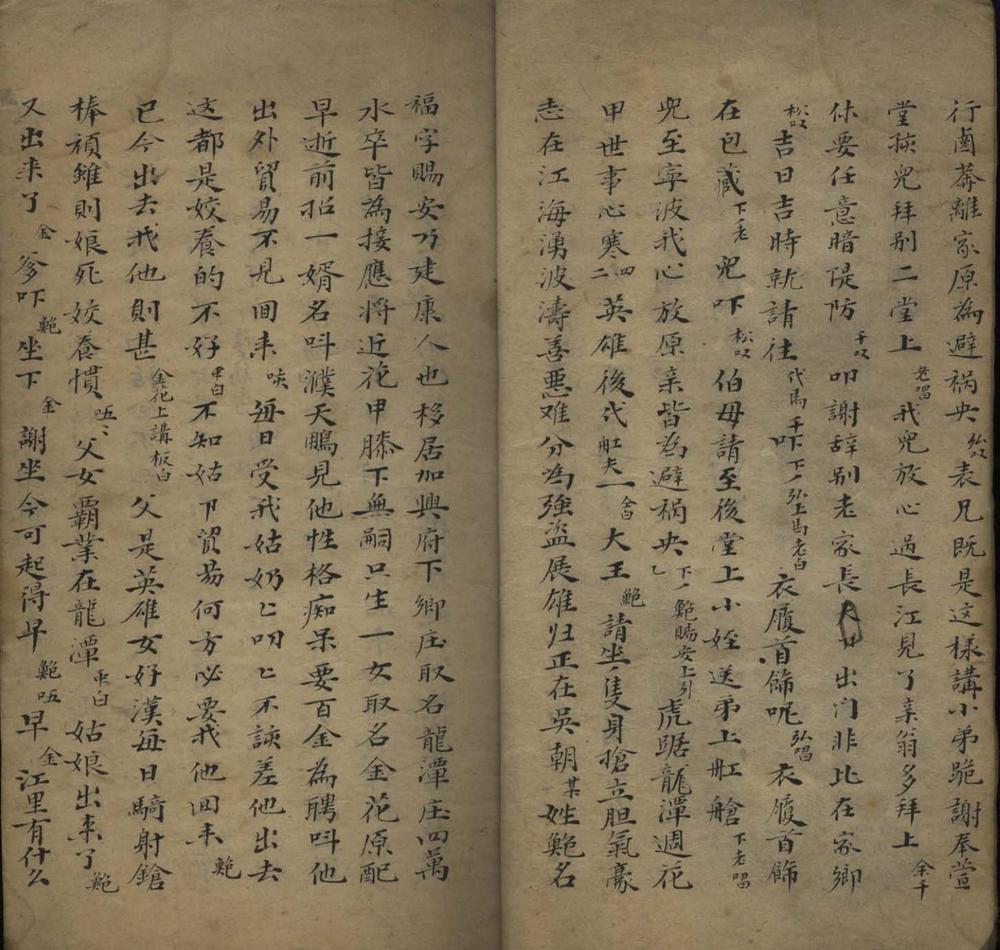 行囱莽離家原為避禍央弘叹表兄既是这樣講小弟跪謝奉萱
堂孩兒拜别二堂上老唱我兒放心过長江見了亲翁多拜上余千
休要任意暗隄防千叹叩謝辞别老家長出门非比在家鄉
松叹吉日吉時就請往代馬千吓下丿弘上馬老白衣履首飾呢弘唱衣履首飾
在包藏下老兒吓松叹伯母請至後堂上小姪送弟上舡艙下老唱
兒至寧波我心放原亲皆為避禍央乙下丿鲍賜安上引虎踞龍潭週花
甲世事心寒四二英雄後代舡夫一合白大王鲍請坐隻身搶立胆氣豪
志在江海湧波濤善悪难分為強盗展雄归正在吳朝某姓鲍名
福字賜安乃建康人也移居加興府下鄉庄取名龍潭庄四萬
水卒皆為接應将近花甲膝下無嗣只生一女取名金花原配
早逝前招一婿名呌濮天鵬見他性格痴呆要百金為聘呌他
出外貿易不見回来唉每日受我姑奶匕叨匕不該差他出去
这都是姣養的不好串白不知姑下貿易何方必要我他回来鲍
已今出去我他則甚金花上講板白父是英雄女好漢每日騎射鎗
棒頑錐則娘死姣養慣唔〻父女覇業在龍潭串白姑娘出来了鲍
又出来了金爹吓鲍坐下金謝坐今可起得早鲍唔早金江里有什么